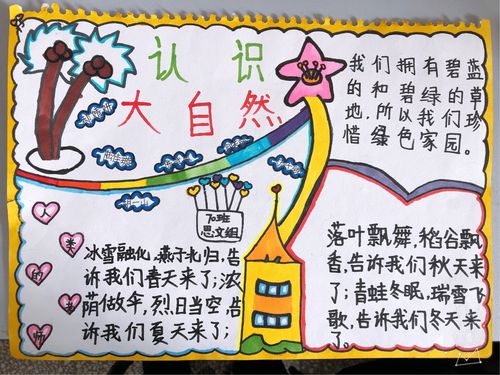 认识
大自然
我们拥有碧蓝
的和碧绿的草
地,所以我们珍
惜绿色家园。
70班
人
类
的
师
冰雪融化,燕子北归,告
诉我们春天来了;浓
荫做伞,烈日当空,告
诉我们夏天来了;
落叶飘舞,稻谷飘
香,告诉我们秋天来
了;青蛙冬眠,瑞雪飞
歌,告诉我们冬天来
了。